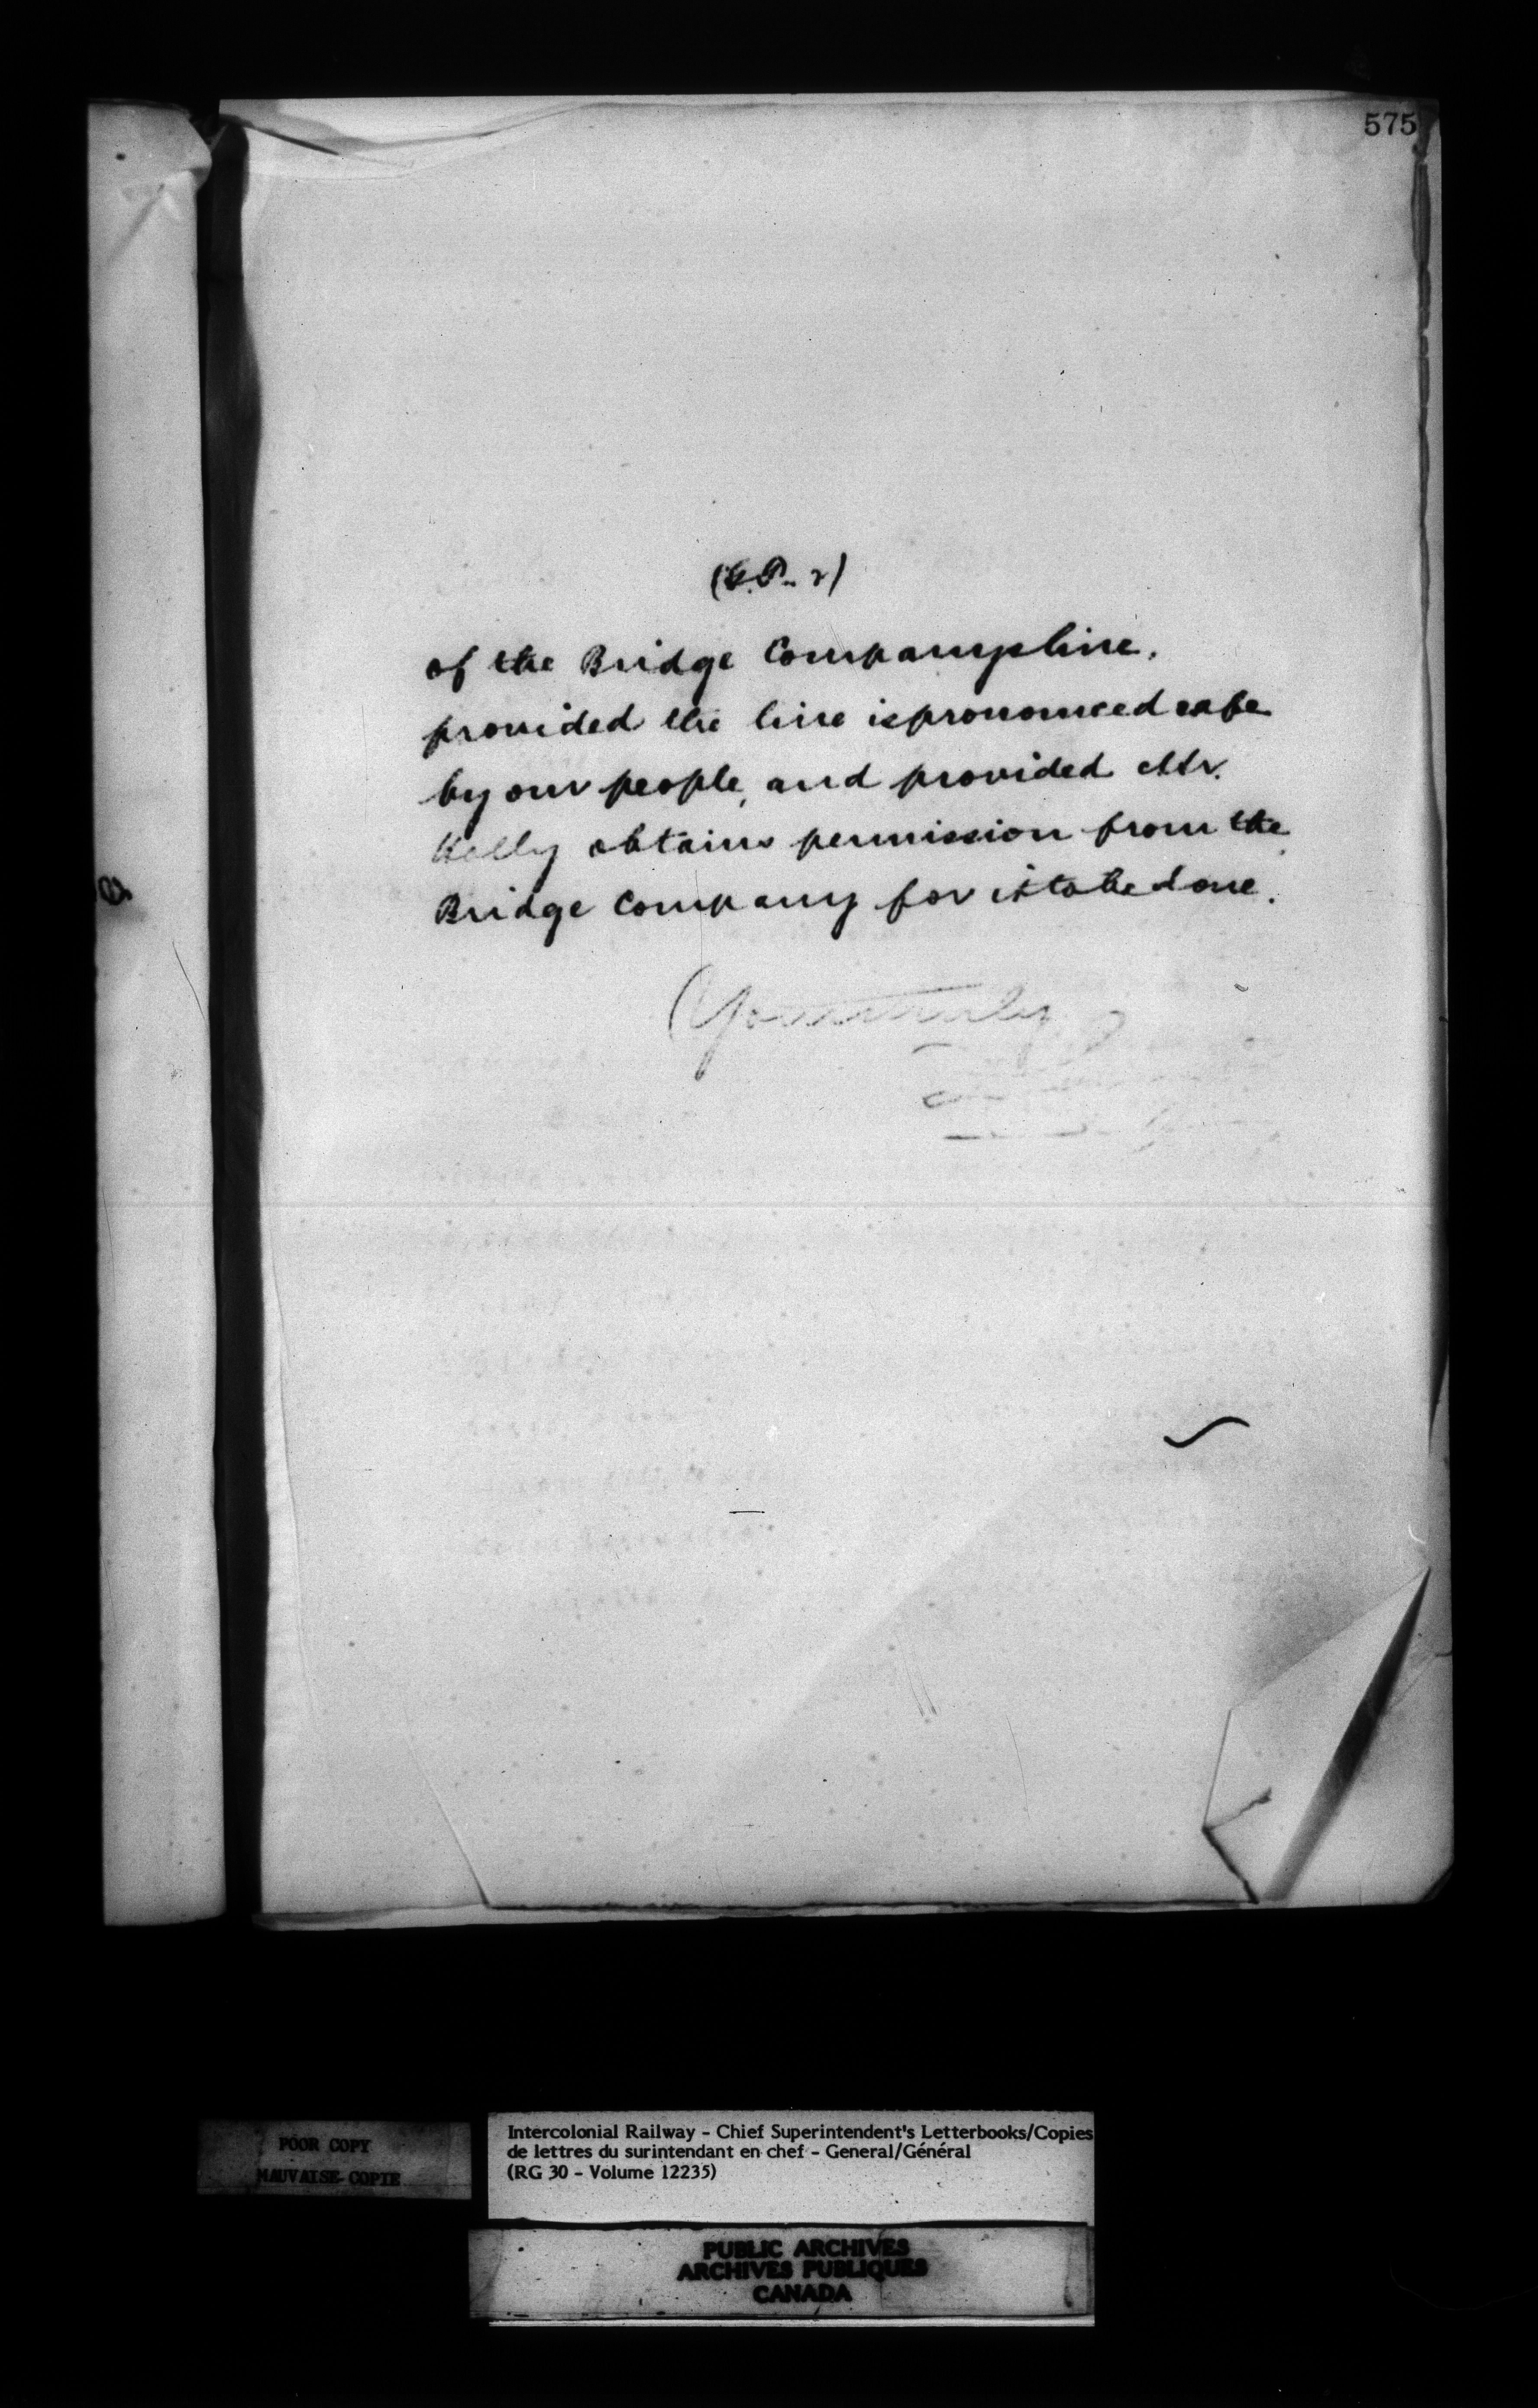 575
(G.P. 2)
of the Bridge Company's line,
provided the line is pronounced safe
by our people, and provided Mr.
Kelly obtains permission from the
Bridge Company for it to be done.
Yours truly
POOR COPY
MAUVAISE COPIE
Intercolonial Railway - Chief Superintendent's Letterbooks/Copies
de lettres du surintendant en chef - General/Général
(RG 30 - Volume 12235)
PUBLIC ARCHIVES
ARCHIVES PUBLIQUES
CANADA